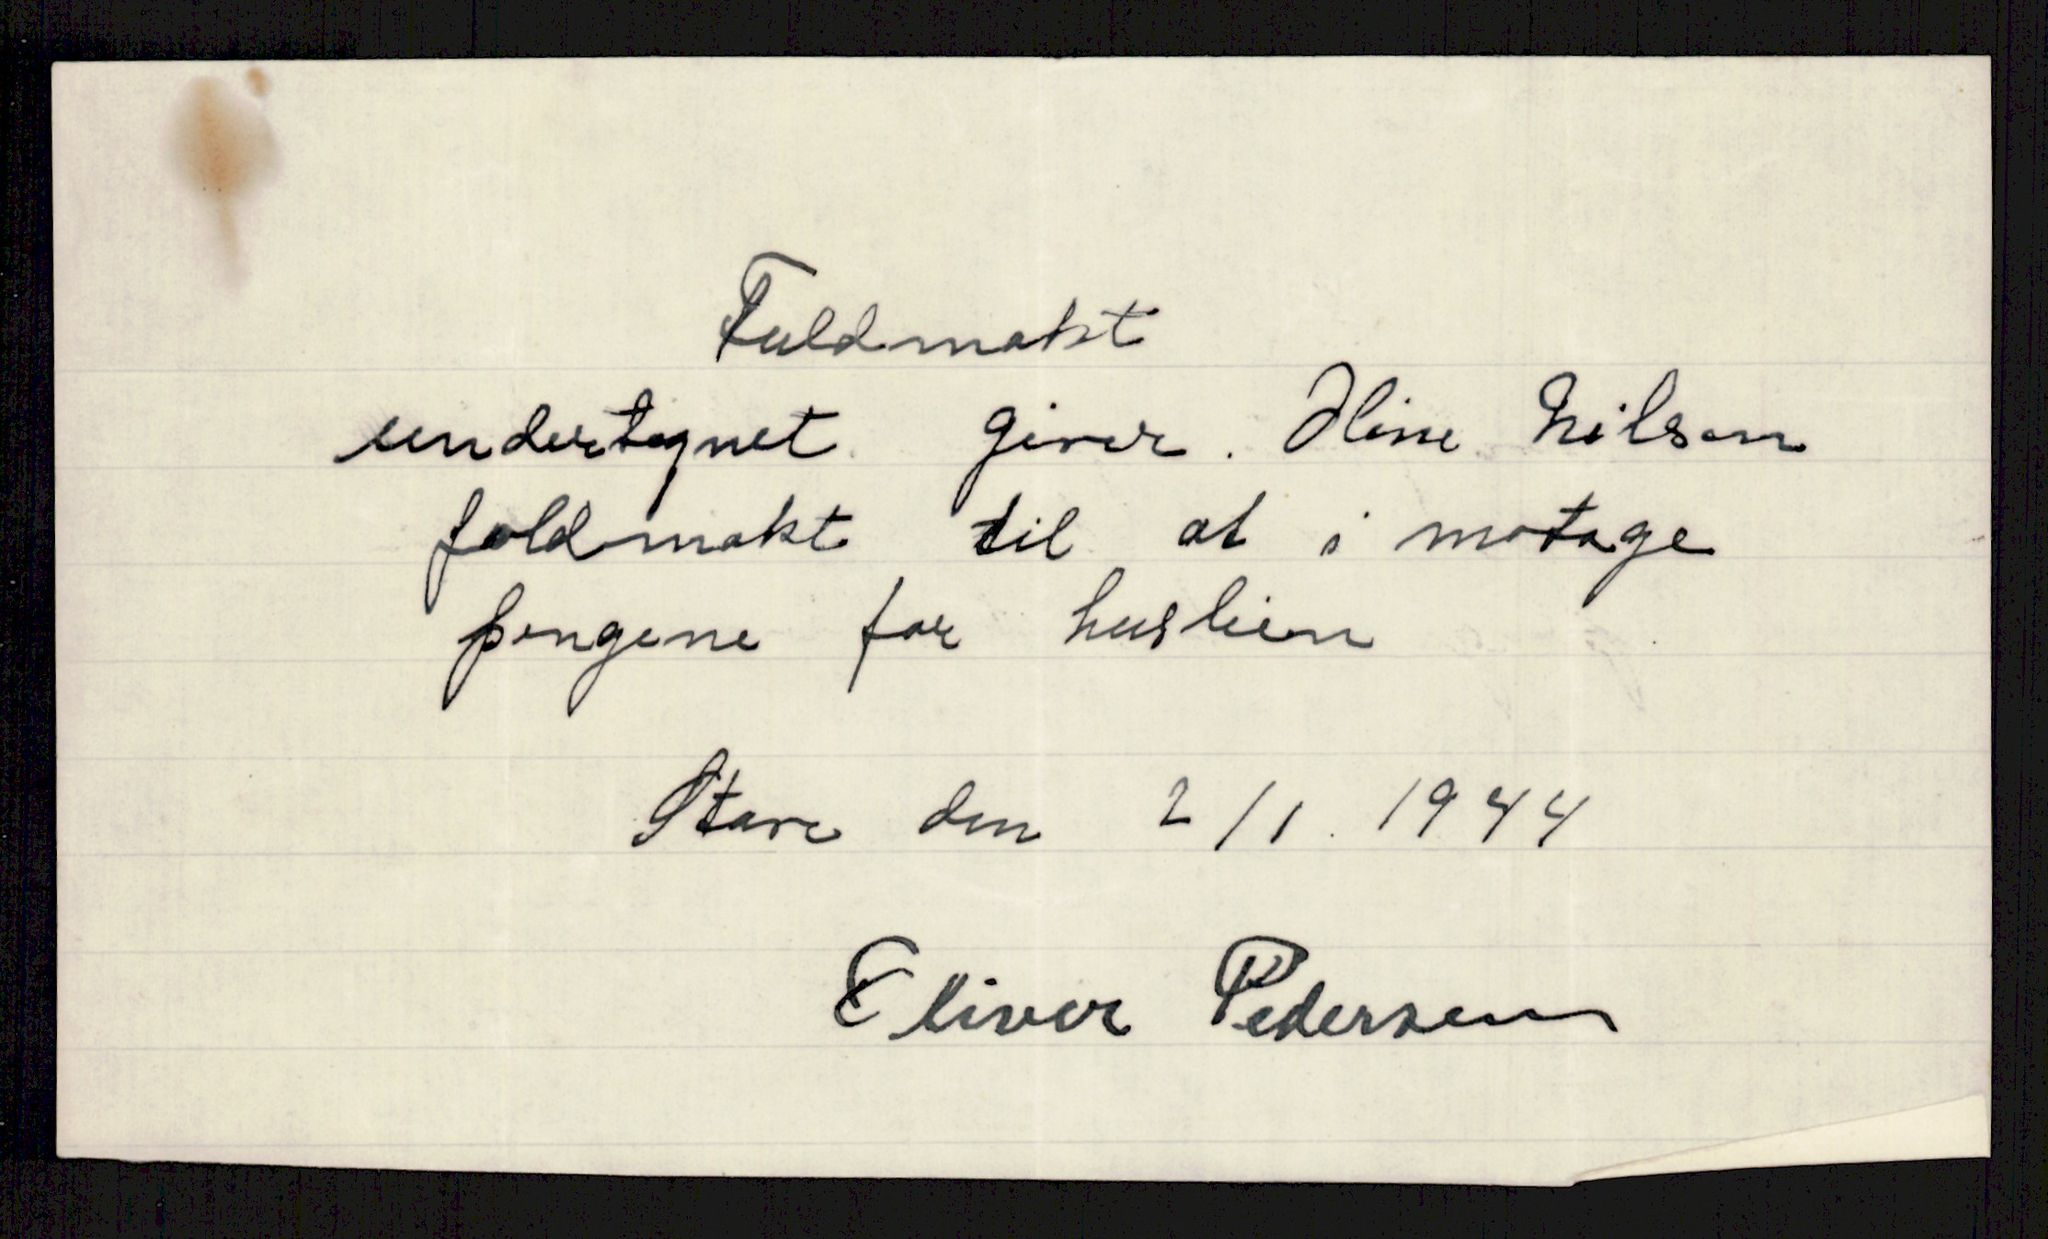 Fuldmakt
undertegnet giver. Oline Nilsen
foldmakt til at i motage
pengene for huslien
Stave den 2/1. 1944
Eliver Pedersen